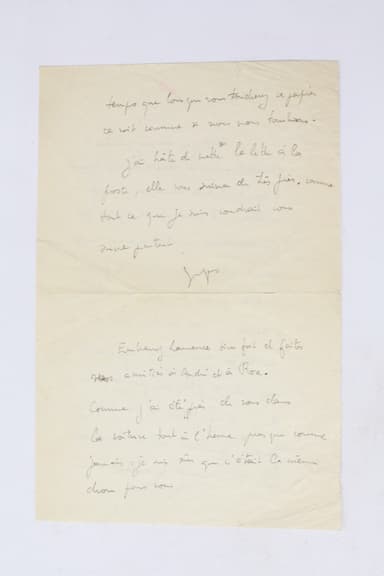 temps que lorsque vous toucherez ce papier
ce soit comme si nous nous touchions.
J'ai hâte de mettre la lettre à la
poste, elle vous suivra de très près, comme
tout ce que je suis voudrait vous
suivre partout.
Embrassez Laurence bien fort et faites
mes amitiés à André et à Roa.
Comme j'ai été près de vous dans
la voiture tout à l'heure, presque comme
jamais, je suis sûr que c'était la même
chose pour vous